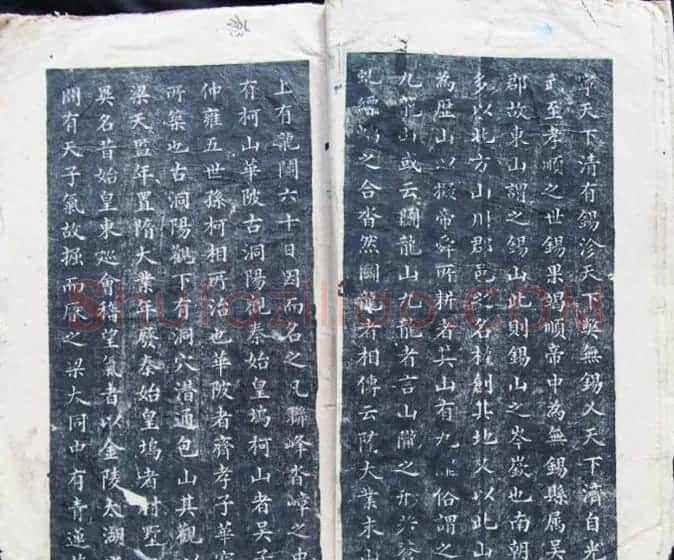 寧天下清有錫沴天下弊無錫乂天下濟自光
武至孝順之世錫果竭順帝中為無錫縣属吴
郡故東山謂之錫山此則錫山之岑嶔也南朝
多以北方山川郡邑之名權創其地又以此山
為歷山以擬帝舜所耕者其山有九隴俗謂之
九龍山或云鬬龍山九龍者言山隴之形若
虬縹螭之合沓然鬬龍者相傳云隋大業末山
上有龍鬬六十日因而名之凡聯峰沓嶂之中
有柯山華陂古洞陽觀秦始皇塢柯山者吴子
仲雍五世孫柯相所治也華陂者齊孝子華寶
所築也古洞陽觀下有洞穴潛通包山其觀以
梁天監年置隋大業年廢秦始皇塢者村墅
異名昔始皇東巡會稽望氣者以金陵太湖
間有天子氣故掘而厭之梁大同中有青蓮花
Shufaziliao.COM